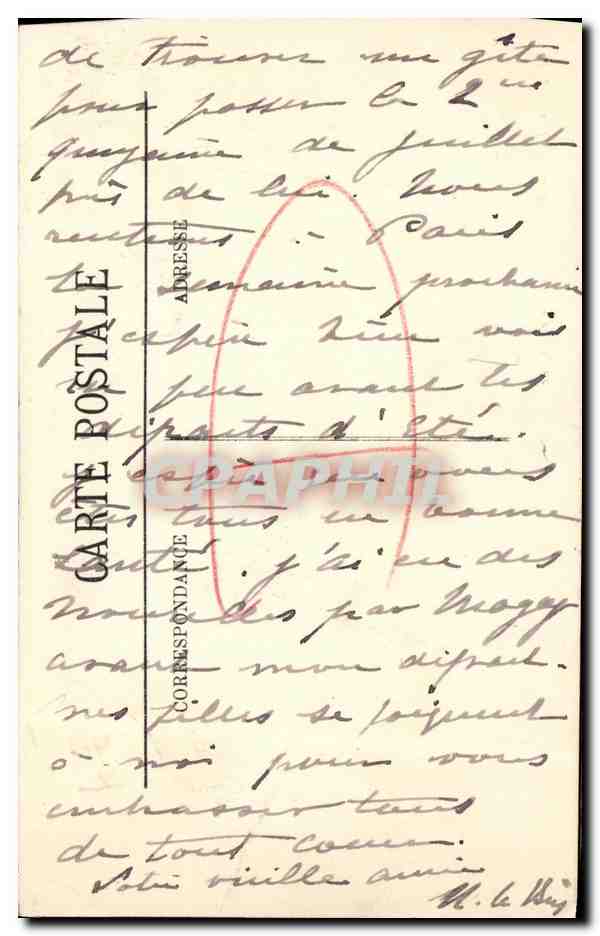 de trouver un gîte
pour passer la 2me
quinzaine de juillet
près de lui. Nous
rentrons à Paris
la semaine prochaine
j'espère bien vous
un peu avant les
départs d'été.
j'espère que vous
êtes tous en bonne
santé. j'ai eu des
nouvelles par
avant mon départ.
mes filles se joignent
à moi pour vous
embrasser tous
de tout coeur.
Votre vieille amie
M. le
CARTE POSTALE
ADRESSE
CORRESPONDANCE
CPAPHIL